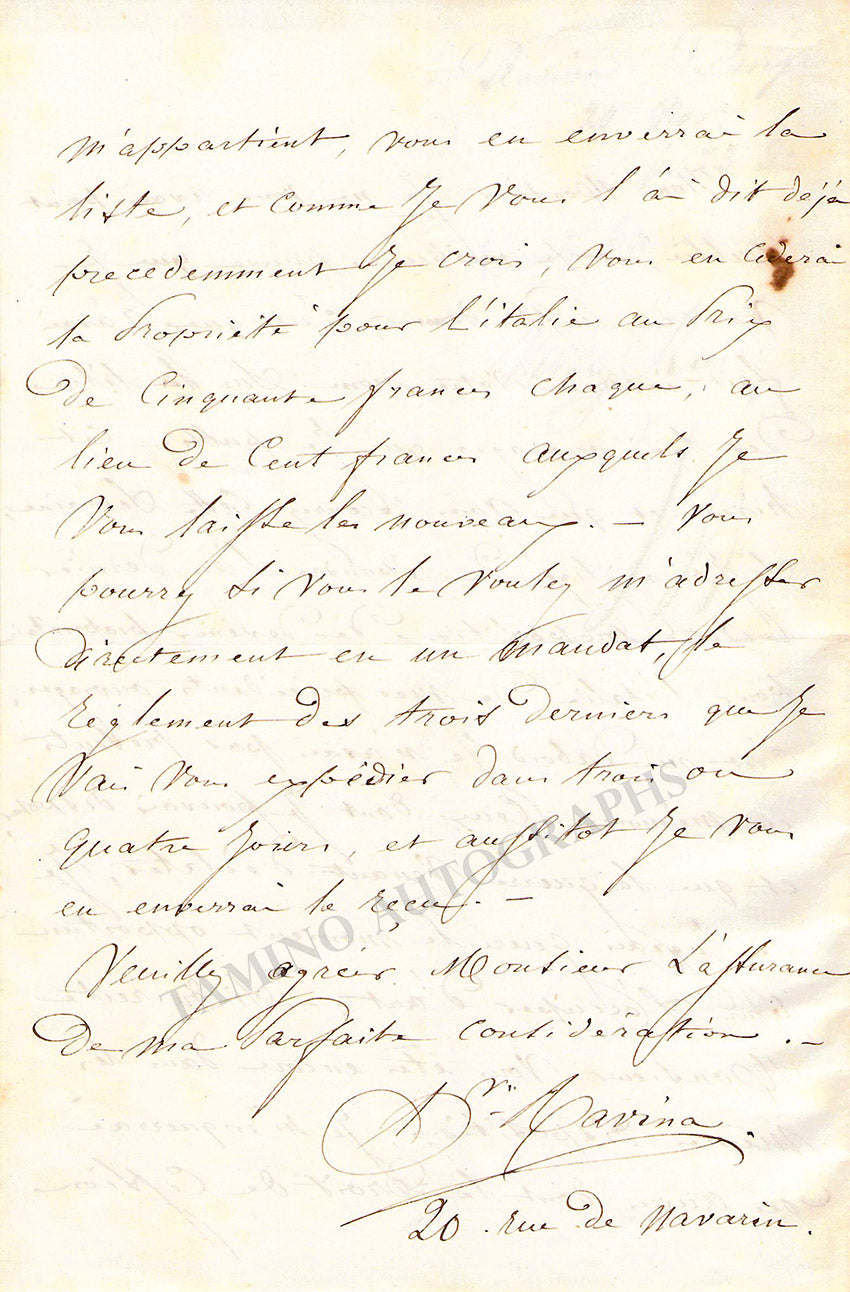 m'appartient, vous en enverrai la
liste, et comme Je Vous l'ai dit déjà
precedemment Je crois, Vous en cèderai
la Propriété pour l'italie au Prix
de Cinquante francs chaque, au
lieu de Cent francs auxquels Je
Vous laisse les nouveaux. — Vous
pourrez si Vous le Voulez m'adresser
directement en un mandat, le
règlement des trois derniers que Je
Vais Vous expédier dans trois ou
quatre Jours, et aussitot Je Vous
en enverrai le reçu. —
Veuillez agréer Monsieur L'assurance
de ma Parfaite Considération. —
Ravina.
20 rue de Navarin.
TAMINO AUTOGRAPHS